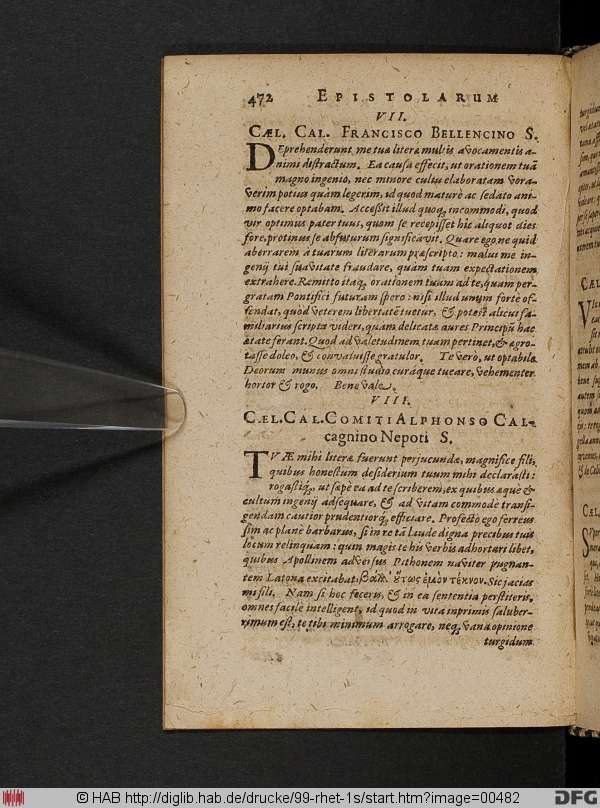 472 EPISTOLARUM
VII.
CÆL. CAL. FRANCISCO BELLENCINO S.
DEprehenderunt me tuæ literæ multis avocamentis a-
nimi distractum. Ea causa effecit, ut orationem tuã
magno ingenio, nec minore cultu elaboratam vora-
verim potius quàm legerim, id quod maturè ac sedato ani-
mo facere optabam. Accessit illud quoq; incommodi, quod
vir optimus pater tuus, quom se recepisset hic aliquot dies
fore, protinus se abfuturum significavit. Quare ego, ne quid
aberrarem à tuarum literarum præscripto: malui me in-
genij tui suavitate fraudare, quàm tuam expectationem
extrahere. Remitto itaq; orationem tuam ad te, quam per-
gratam Pontifici futuram spero: nisi illud unum forte of-
fendat, quòd veterem libertatẽ tuetur, & potest alicui fa-
miliarius scripta videri, quàm delicatæ aures Principũ hac
ætate ferant. Quod ad valetudinem tuam pertinet, & ægro-
tasse doleo, & convaluisse gratulor. Te verò, ut optabile
Deorum munus omni studio curáque tueare, vehementer
hortor & rogo. Bene vale.
VIII.
CÆL. CAL. COMITI ALPHONSO CAL-
cagnino Nepoti S.
TVÆ mihi literæ fuerunt perjucundæ, magnifice fili,
quibus honestum desiderium tuum mihi declarasti:
rogastiq; ut sæpè ea ad te scriberem, ex quibus æquè &
cultum ingenij adsequare, & ad vitam commodè transi-
gendam cautior prudentiorq; efficiare. Profectò ego ferreus
sim ac planè barbarus, si in re tã laude digna precibus tuis
locum relinquam: quin magis te his verbis adhortari libet,
quibus Apollinem adversus Pithonem naviter pugnan-
tem Latona excitabat: βάλλ' ὕτως ἐμὸν τέκνον. Sic jacias
mi fili. Nam si hoc feceris, & in ea sententia perstiteris,
omnes facilè intelligent, id quod in vita inprimis saluber-
rimum est, te tibi minimum arrogare, neq; vana opinione
turgidum
© HAB http://diglib.hab.de/drucke/99-rhet-1s/start.htm?image=00482
DFG